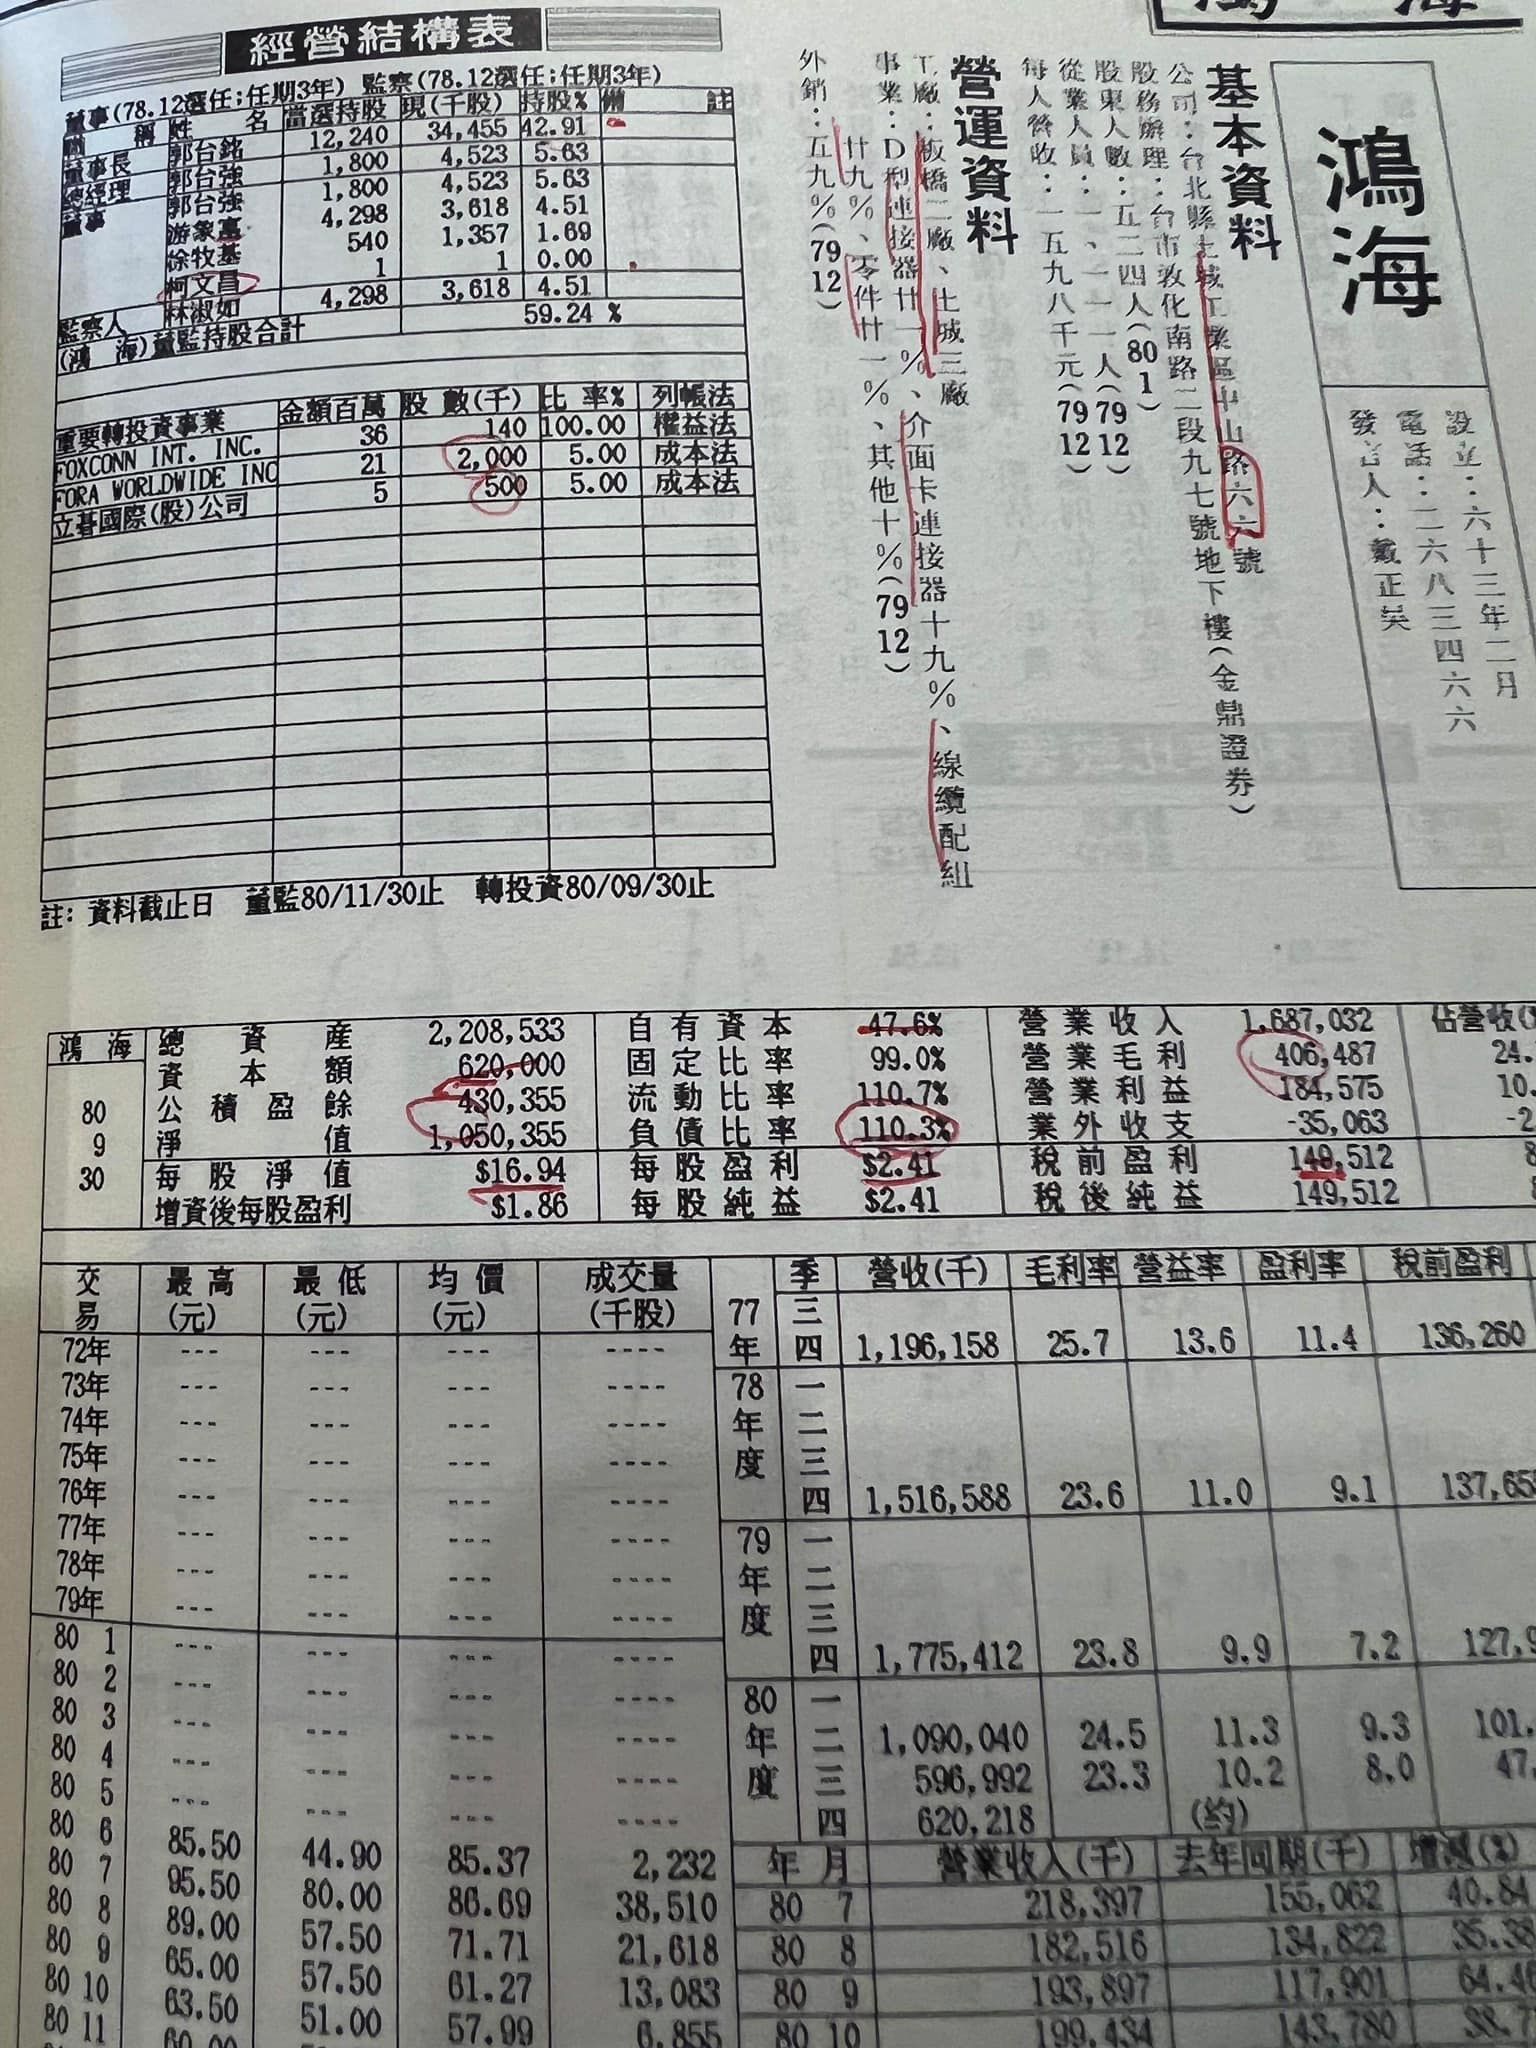 鴻海
經營結構表
董事(78.12選任;任期3年) 監察(78.12選任;任期3年)
職 稱 姓 名 當選持股 現(千股) 持股% 備 註
董事長 郭台銘 12,240 34,455 42.91
總經理 郭台強 1,800 4,523 5.63
董事 郭台強 1,800 4,523 5.63
游象富 4,298 3,618 4.51
涂牧基 540 1,357 1.69
柯文昌 1 1 0.00
監察人 林淑如 4,298 3,618 4.51
(鴻 海)董監持股合計 59.24 %
重要轉投資事業 金額百萬 股 數(千) 比 率% 列帳法
FOXCONN INT. INC. 36 140 100.00 權益法
FORA WORLDWIDE INC 21 2,000 5.00 成本法
立碁國際(股)公司 5 500 5.00 成本法
註: 資料截止日 董監80/11/30止 轉投資80/09/30止
鴻海
設立:六十三年二月
電話:二六八三四六六
發言人:戴正吳
基本資料
公司:台北縣土城工業區中山路六六號
股務辦理:台市敦化南路二段九七號地下樓(金鼎證券)
股東人數:五二四人(80 1)
從業人員:一、一一一人(79 12)
每人營收:一五九八千元(79 12)
營運資料
工廠:板橋二廠、土城三廠
事業:D型連接器廿一%、介面卡連接器十九%、線纜配組
廿九%、零件廿一%、其他十%(79 12)
外銷:五九%(79 12)
鴻 海 80 9 30
總資產 2,208,533 自有資本 47.6% 營業收入 1,687,032 佔營收(
資本額 620,000 固定比率 99.0% 營業毛利 406,487 24.
公積盈餘 430,355 流動比率 110.7% 營業利益 184,575 10.
淨值 1,050,355 負債比率 110.3% 業外收支 -35,063 -2
每股淨值 $16.94 每股盈利 $2.41 稅前盈利 149,512 8
增資後每股盈利 $1.86 每股純益 $2.41 稅後純益 149,512
交易 最高(元) 最低(元) 均價(元) 成交量(千股)
72年 --- --- --- ----
73年 --- --- --- ----
74年 --- --- --- ----
75年 --- --- --- ----
76年 --- --- --- ----
77年 --- --- --- ----
78年 --- --- --- ----
79年 --- --- --- ----
80 1 --- --- --- ----
80 2 --- --- --- ----
80 3 --- --- --- ----
80 4 --- --- --- ----
80 5 --- --- --- ----
80 6 85.50 44.90 85.37 2,232
80 7 95.50 80.00 86.69 38,510
80 8 89.00 57.50 71.71 21,618
80 9 65.00 57.50 61.27 13,083
80 10 63.50 51.00 57.99 6,855
80 11
季 營收(千) 毛利率 營益率 盈利率 稅前盈利
77年 三
四 1,196,158 25.7 13.6 11.4 136,260
78年度 一
二
三
四 1,516,588 23.6 11.0 9.1 137,65
79年度 一
二
三
四 1,775,412 23.8 9.9 7.2 127,9
80年度 一
二 1,090,040 24.5 11.3 9.3 101,
三 596,992 23.3 10.2 8.0 47,
四 620,218 (約)
年 月 營業收入(千) 去年同期(千) 增減(%)
80 7 218,397 155,062 40.84
80 8 182,516 134,822 35.38
80 9 193,897 117,901 64.46
80 10 199,434 143,780 38.7